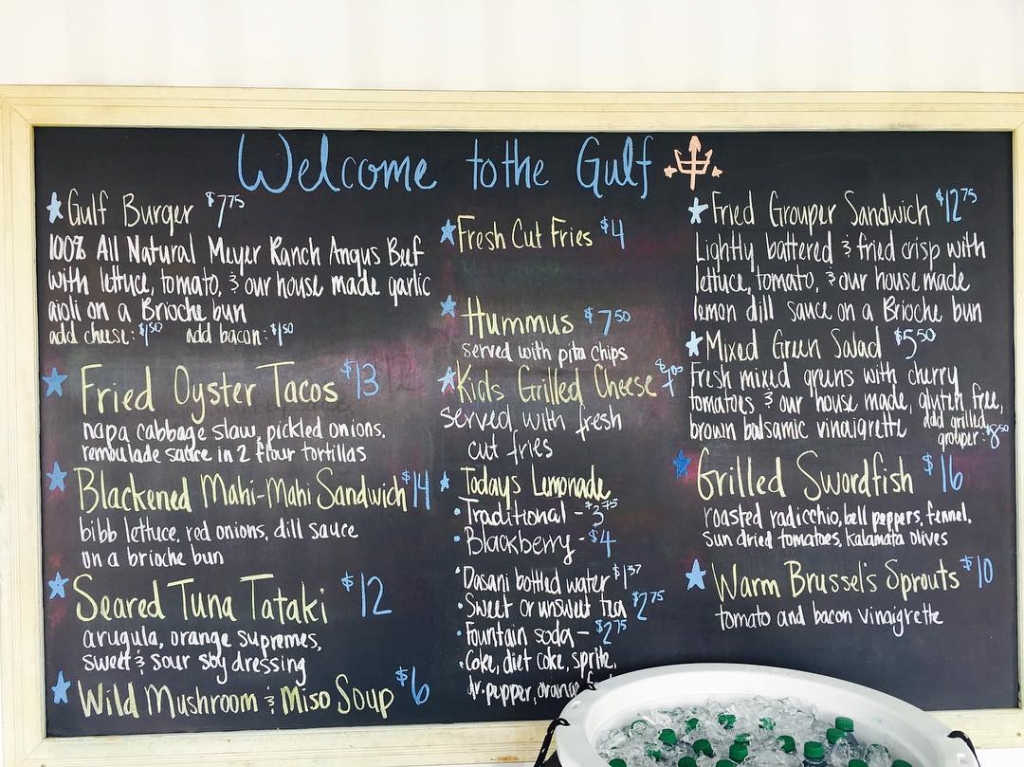 Welcome to the Gulf
Gulf Burger $7.75
100% All Natural Meyer Ranch Angus Beef
with lettuce, tomato, & our house made garlic
aioli on a Brioche bun
add cheese: $1.50 add bacon: $1.50
Fried Oyster Tacos $13
napa cabbage slaw, pickled onions,
remoulade sauce in 2 flour tortillas
Blackened Mahi-Mahi Sandwich $14
bibb lettuce, red onions, dill sauce
on a brioche bun
Seared Tuna Tataki $12
arugula, orange supremes,
sweet & sour soy dressing
Wild Mushroom & Miso Soup $6
Fresh Cut Fries $4
Hummus $7.50
served with pita chips
Kids Grilled Cheese
served with fresh
cut fries
Todays Lemonade
Traditional - $3.75
Blackberry - $4
Dasani bottled water $1.37
Sweet or unsweet tea $2.75
Fountain soda - $2.75
Coke, diet coke, sprite,
dr. pepper, orange
Fried Grouper Sandwich $12.75
Lightly battered & fried crisp with
lettuce, tomato, & our house made
lemon dill sauce on a Brioche bun
Mixed Green Salad $5.50
Fresh mixed greens with cherry
tomatoes & our house made, gluten free,
brown balsamic vinaigrette add grilled
grouper: $8.50
Grilled Swordfish $16
roasted radicchio, bell peppers, fennel,
sun dried tomatoes, kalamata olives
Warm Brussel's Sprouts $10
tomato and bacon vinaigrette